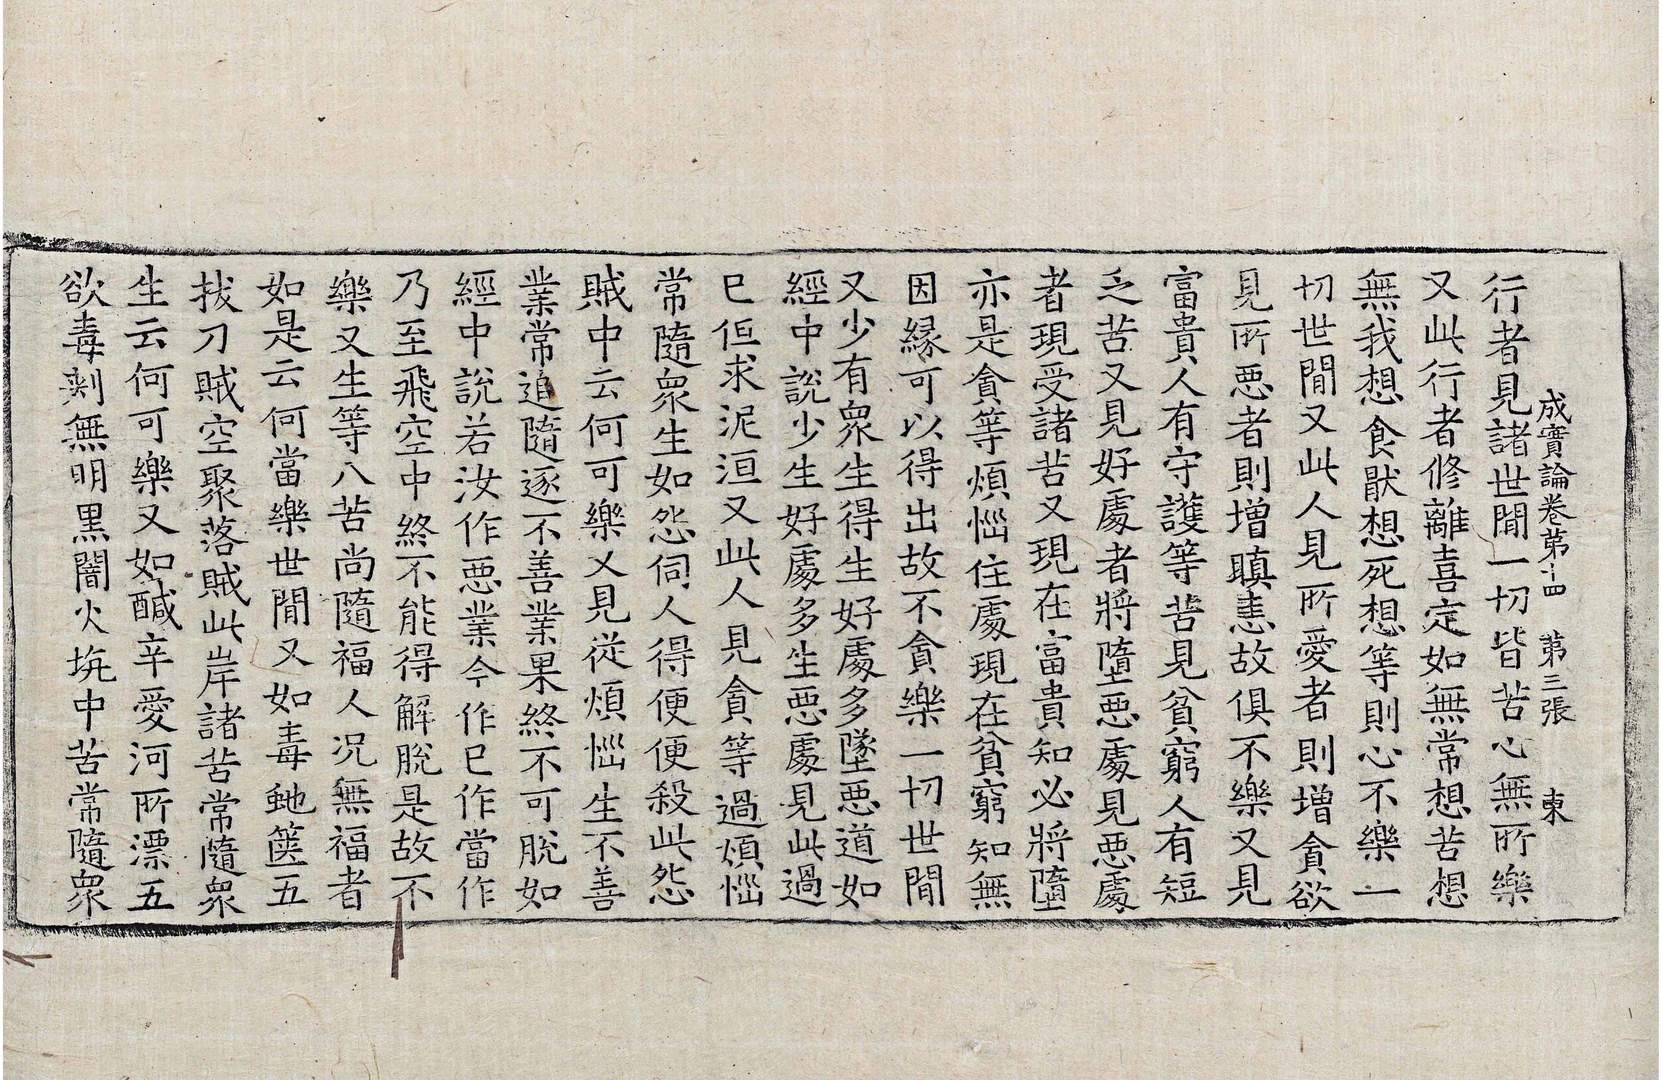 成實論卷第十四 第三張 東
行者見諸世間一切皆苦心無所樂
又此行者修離喜定如無常想苦想
無我想食猒想死想等則心不樂一
切世間又此人見所愛者則增貪欲
見所惡者則增瞋恚故俱不樂又見
富貴人有守護等苦見貧窮人有短
乏苦又見好處者將墮惡處見惡處
者現受諸苦又現在富貴知必將墮
亦是貪等煩惱住處現在貧窮知無
因緣可以得出故不貪樂一切世間
又少有衆生得生好處多墜惡道如
經中說少生好處多生惡處見此過
已但求泥洹又此人見貪等過煩惱
常隨衆生如怨伺人得便便殺此怨
賊中云何可樂又見從煩惱生不善
業常追隨逐不善業果終不可脫如
經中說若汝作惡業今作已作當作
乃至飛空中終不能得解脫是故不
樂又生等八苦尚隨福人况無福者
如是云何當樂世間又如毒虵篋五
拔刀賊空聚落賊此岸諸苦常隨衆
生云何可樂又如醎辛愛河所漂五
欲毒刺無明黑闇火坑中苦常隨衆